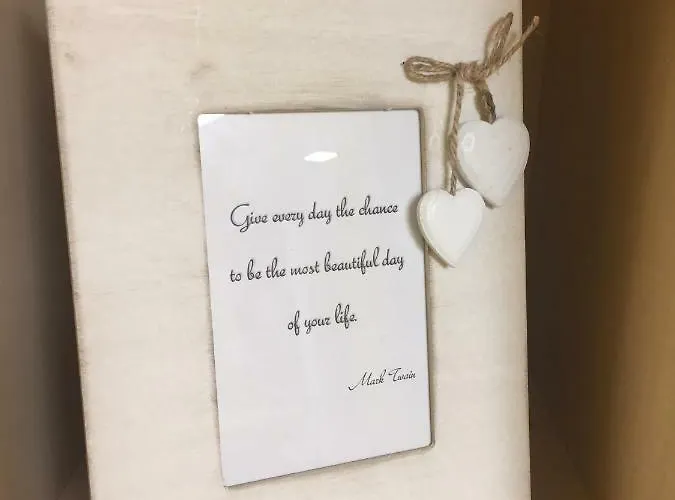 Give every day the chance
to be the most beautiful day
of your life.
Mark Twain